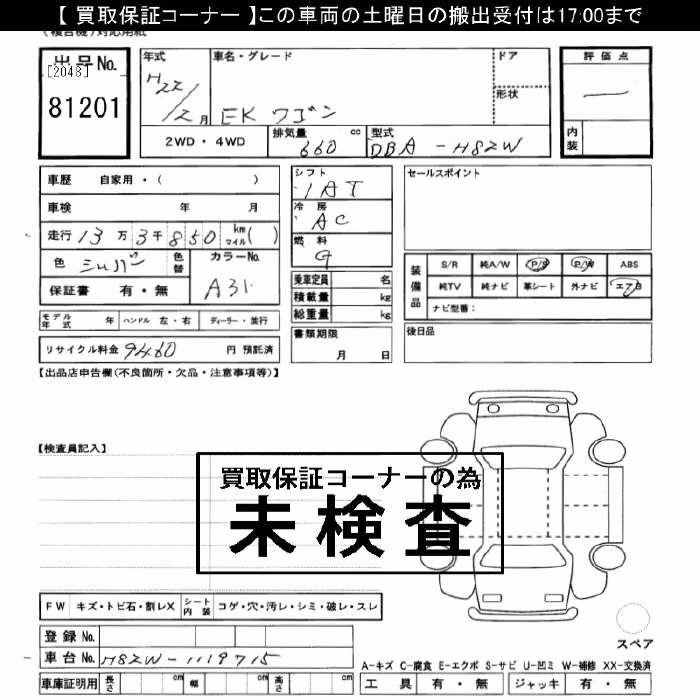 【 買取保証コーナー 】この車両の土曜日の搬出受付は17:00まで
出品No.
[2048]
81201
年式
H22/12月
車名・グレード
EK ワゴン
ドア
形状
評価点
内装
2WD・4WD
排気量 cc
660
型式
DBA-H82W
車歴 自家用・( )
車検 年 月
走行 13万3千850 km マイル( )
色 シルバー 色替
カラーNo.
A31
保証書 有・無
シフト
IAT
冷房
AC
燃料
G
乗車定員 名
積載量 kg
総重量 kg
セールスポイント
装備品
S/R 純A/W P/S P/W ABS
純TV 純ナビ 革シート 外ナビ エアB
ナビ型番:
モデル年式 年 ハンドル 左・右 ディーラー・並行
書類期限
月 日
後日品
リサイクル料金 9460 円 預託済
【出品店申告欄(不良箇所・欠品・注意事項等)】
【検査員記入】
買取保証コーナーの為
未検査
FW キズ・トビ石・割レX シート内装 コゲ・穴・汚レ・シミ・破レ・スレ
登録No.
車台No. H82W-1119715
スペア
A-キズ C-腐食 E-エクボ S-サビ U-凹ミ W-補修 XX-交換済
車庫証明用 長さ cm 幅 cm 高さ cm
工具 有・無 ジャッキ 有・無